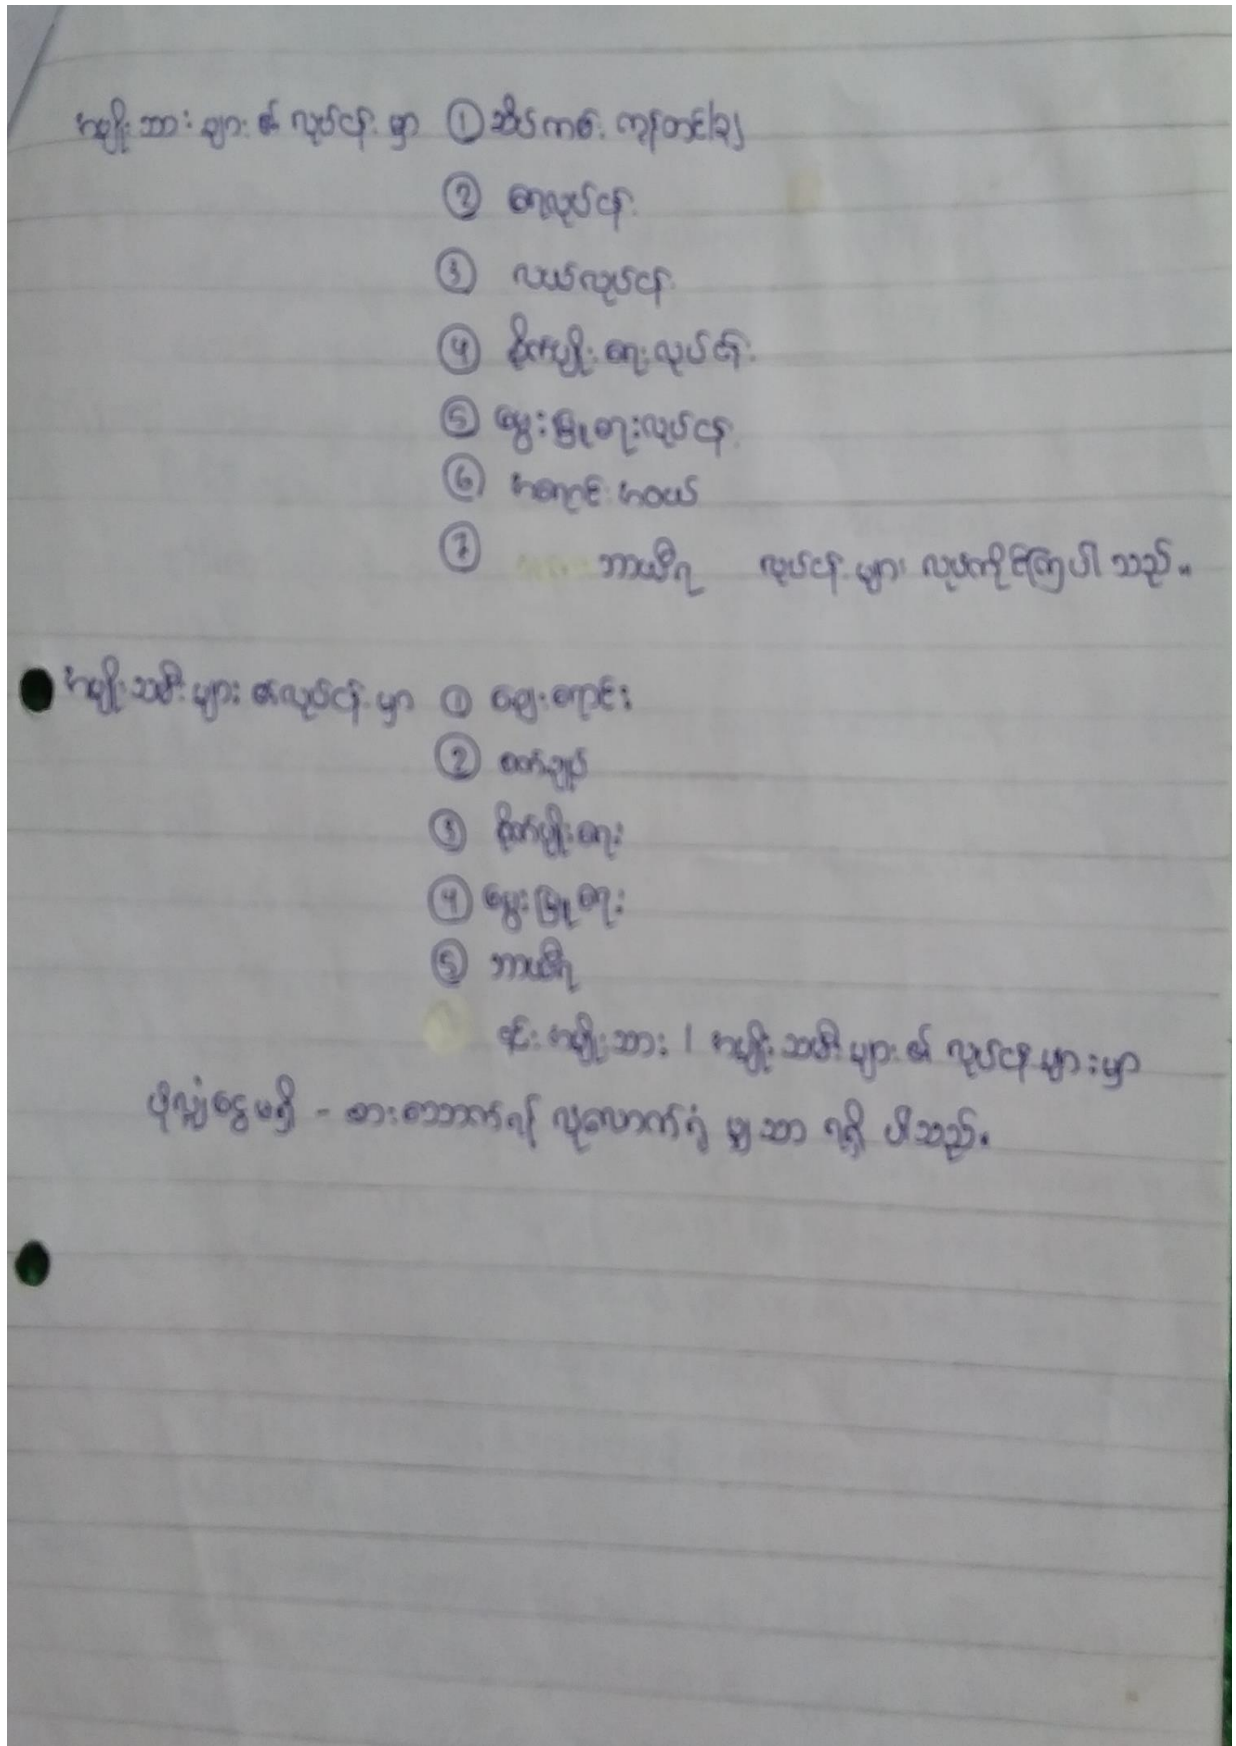 အမျိုးသားများ၏ လုပ်ငန်းမှာ ① ဆိပ်ကမ်း ကုန်တင်/ချ
② ရေလုပ်ငန်း
③ လယ်လုပ်ငန်း
④ စိုက်ပျိုးရေးလုပ်ငန်း
⑤ မွေးမြူရေးလုပ်ငန်း
⑥ အရောင်းအဝယ်
⑦ ဘာယီရ လုပ်ငန်းများ လုပ်ကိုင်ကြပါသည်။
အမျိုးသမီးများ၏လုပ်ငန်းမှာ ① ဈေးရောင်း
② စက်ချုပ်
③ စိုက်ပျိုးရေး
④ မွေးမြူရေး
⑤ ဘာယီရ
၎င်း အမျိုးသား / အမျိုးသမီးများ၏ လုပ်ငန်းများမှာ
ပိုလျှံငွေမရှိ - စားသောက်ရန် လုံလောက်ရုံမျှသာ ရရှိပါသည်။